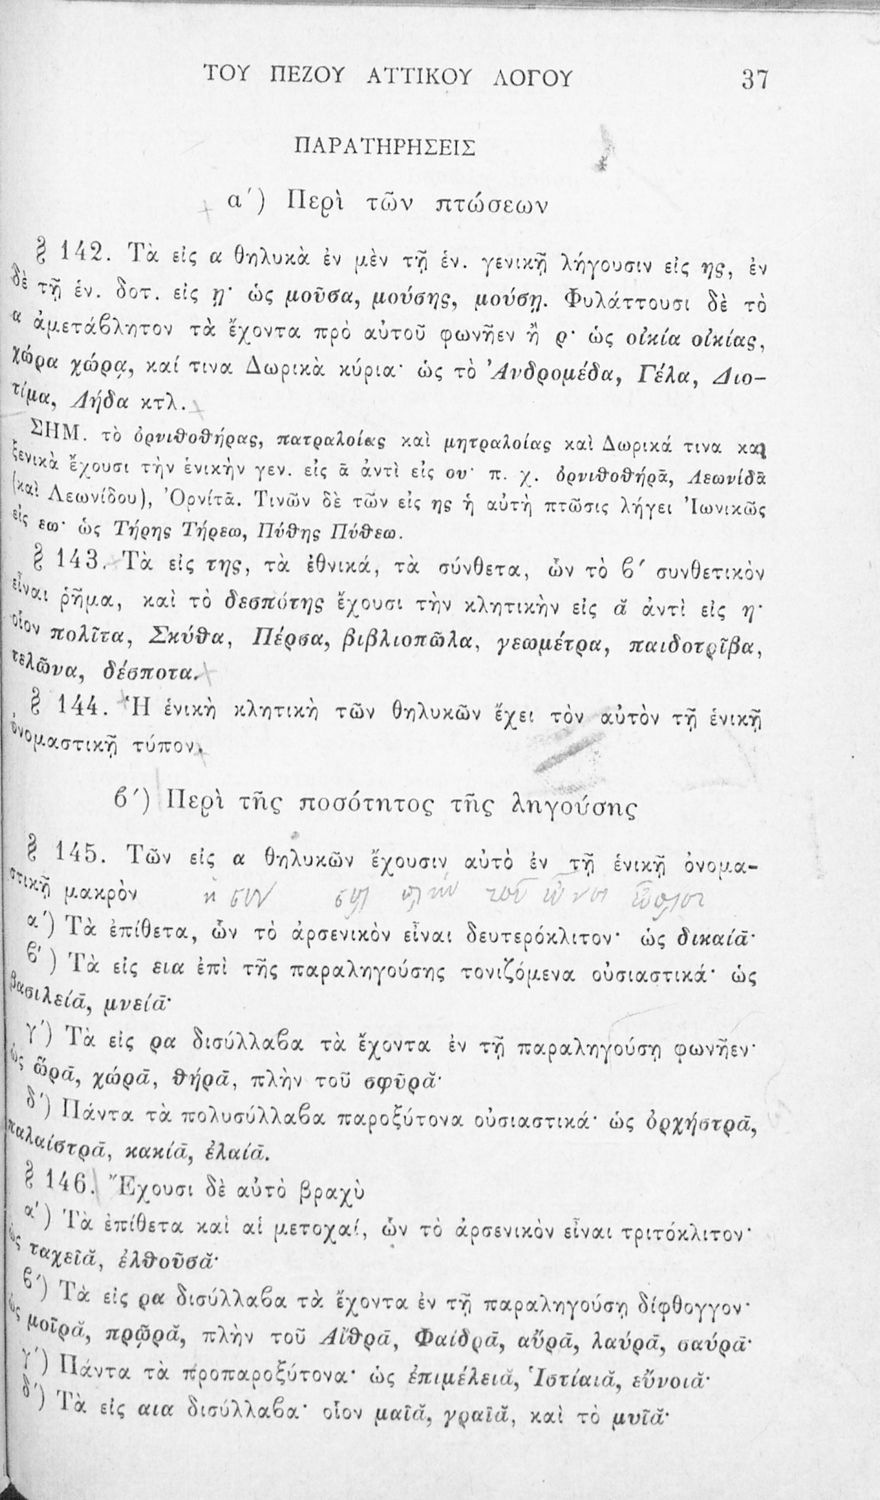 ΤΟΥ ΠΕΖΟΥ ΑΤΤΙΚΟΥ ΛΟΓΟΥ 37
ΠΑΡΑΤΗΡΗΣΕΙΣ
α΄) Περὶ τῶν πτώσεων
§ 142. Τὰ εἰς α θηλυκὰ ἐν μὲν τῇ ἑν. γενικῇ λήγουσιν εἰς ης, ἐν
δὲ τῇ ἑν. δοτ. εἰς ῃ· ὡς μοῦσα, μούσης, μούσῃ. Φυλάττουσι δὲ τὸ
α ἀμετάβλητον τὰ ἔχοντα πρὸ αὐτοῦ φωνῆεν ἢ ρ· ὡς οἰκία οἰκίας,
χώρα χώρᾳ, καί τινα Δωρικὰ κύρια· ὡς τὸ Ἀνδρομέδα, Γέλα, Διο-
τίμα, Λήδα κτλ.
ΣΗΜ. τὸ ὀρνιθοθήρας, πατραλοίας καὶ μητραλοίας καὶ Δωρικά τινα καὶ
ξενικὰ ἔχουσι τὴν ἑνικὴν γεν. εἰς ᾱ ἀντὶ εἰς ου· π. χ. ὀρνιθοθήρᾱ, Λεωνίδᾱ
(καὶ Λεωνίδου), Ὀρνίτᾱ. Τινῶν δὲ τῶν εἰς ης ἡ αὐτὴ πτῶσις λήγει Ἰωνικῶς
εἰς εω· ὡς Τήρης Τήρεω, Πύθης Πύθεω.
§ 143. Τὰ εἰς της, τὰ ἐθνικά, τὰ σύνθετα, ὧν τὸ β΄ συνθετικὸν
εἶναι ῥῆμα, καὶ τὸ δεσπότης ἔχουσι τὴν κλητικὴν εἰς ᾰ ἀντὶ εἰς η·
οἷον πολῖτα, Σκύθα, Πέρσα, βιβλιοπῶλα, γεωμέτρα, παιδοτρῖβα,
τελῶνα, δέσποτα.
§ 144. Ἡ ἑνικὴ κλητικὴ τῶν θηλυκῶν ἔχει τὸν αὐτὸν τῇ ἑνικῇ
ὀνομαστικῇ τύπον.
β΄) Περὶ τῆς ποσότητος τῆς ληγούσης
§ 145. Τῶν εἰς α θηλυκῶν ἔχουσιν αὐτὸ ἐν τῇ ἑνικῇ ὀνομα-
στικῇ μακρὸν
α΄) Τὰ ἐπίθετα, ὧν τὸ ἀρσενικὸν εἶναι δευτερόκλιτον· ὡς δικαίᾱ·
β΄) Τὰ εἰς εια ἐπὶ τῆς παραληγούσης τονιζόμενα οὐσιαστικά· ὡς
βασιλείᾱ, μνείᾱ·
γ΄) Τὰ εἰς ρα δισύλλαβα τὰ ἔχοντα ἐν τῇ παραληγούσῃ φωνῆεν·
ὡς ὥρᾱ, χώρᾱ, θήρᾱ, πλὴν τοῦ σφῦρᾰ·
δ΄) Πάντα τὰ πολυσύλλαβα παροξύτονα οὐσιαστικά· ὡς ὀρχήστρᾱ,
παλαίστρᾱ, κακίᾱ, ἐλαίᾱ.
§ 146. Ἔχουσι δὲ αὐτὸ βραχὺ
α΄) Τὰ ἐπίθετα καὶ αἱ μετοχαί, ὧν τὸ ἀρσενικὸν εἶναι τριτόκλιτον·
ὡς ταχεῖᾰ, ἐλθοῦσᾰ·
β΄) Τὰ εἰς ρα δισύλλαβα τὰ ἔχοντα ἐν τῇ παραληγούσῃ δίφθογγον·
ὡς μοῖρᾰ, πρῷρᾰ, πλὴν τοῦ Αἴθρᾱ, Φαίδρᾱ, αὔρᾱ, λαύρᾱ, σαύρᾱ·
γ΄) Πάντα τὰ προπαροξύτονα· ὡς ἐπιμέλειᾰ, Ἱστίαιᾰ, εὔνοιᾰ·
δ΄) Τὰ εἰς αια δισύλλαβα· οἷον μαῖᾰ, γραῖᾰ, καὶ τὸ μυῖᾰ·